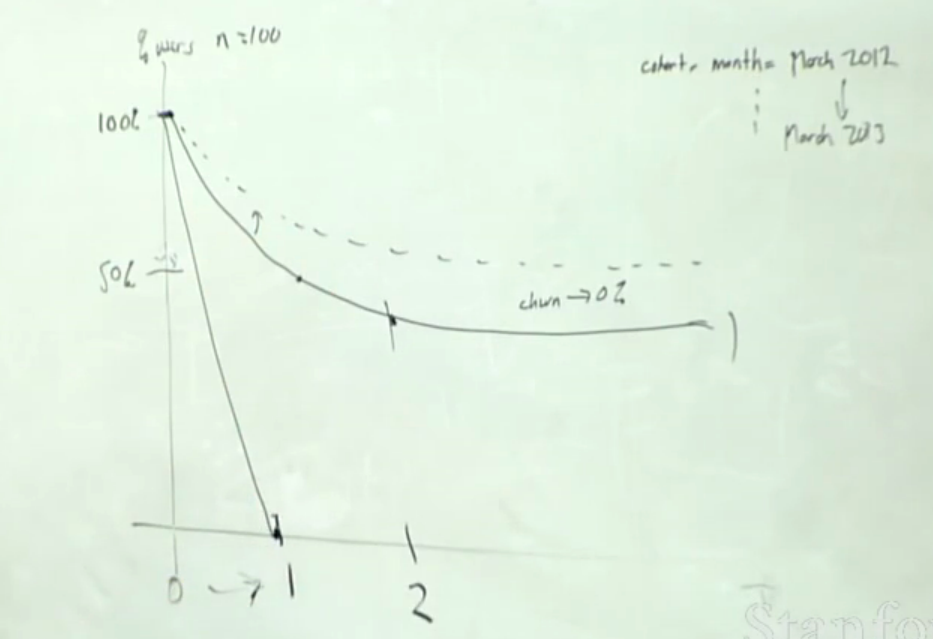 % users n=100
cohort, month= March 2012
March 2013
100%
50%
churn → 0%
0 → 1 2
Stanfo